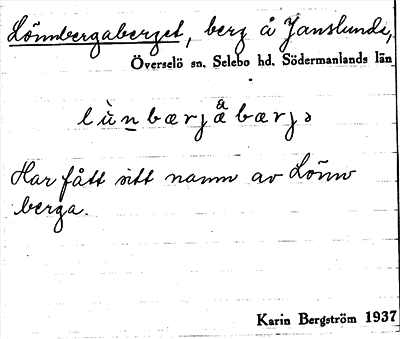 Lönnbergaberget, berg å Janslunda,
Överselö sn. Selebo hd. Södermanlands län
Har fått sitt namn av Lönn
berga.
Karin Bergström 1937